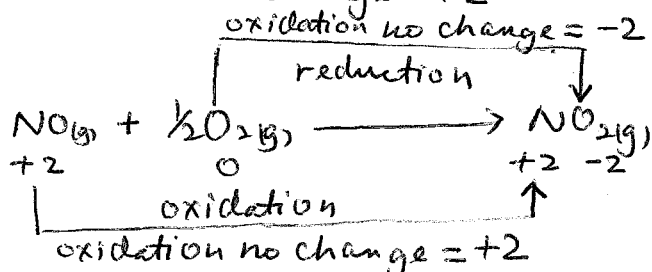 oxidation no change = -2
reduction
NO(g) + ½O2(g) → NO2(g)
+2 0 +2 -2
oxidation
oxidation no change = +2